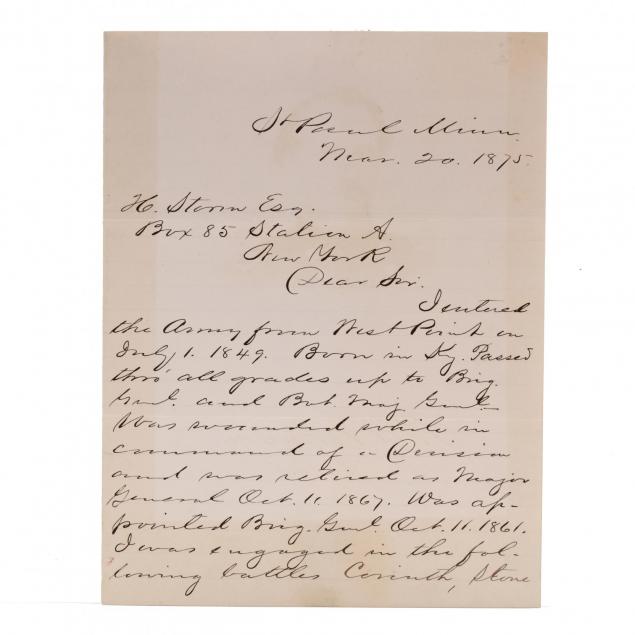 St Paul Minn.
Mar. 20. 1875.
H. Storm Esq.
Box 85 Station A.
New York
Dear Sir.
I entered
the Army from West Point on
July 1. 1849. Born in Ky. Passed
thro' all grades up to Brig.
Genl. and Bvt. Maj Genl.
Was wounded while in
command of a Division
and was retired as Major
General Oct. 11. 1867. Was ap-
pointed Brig. Genl. Oct. 11. 1861.
I was engaged in the fol-
lowing battles Corinth, Stone